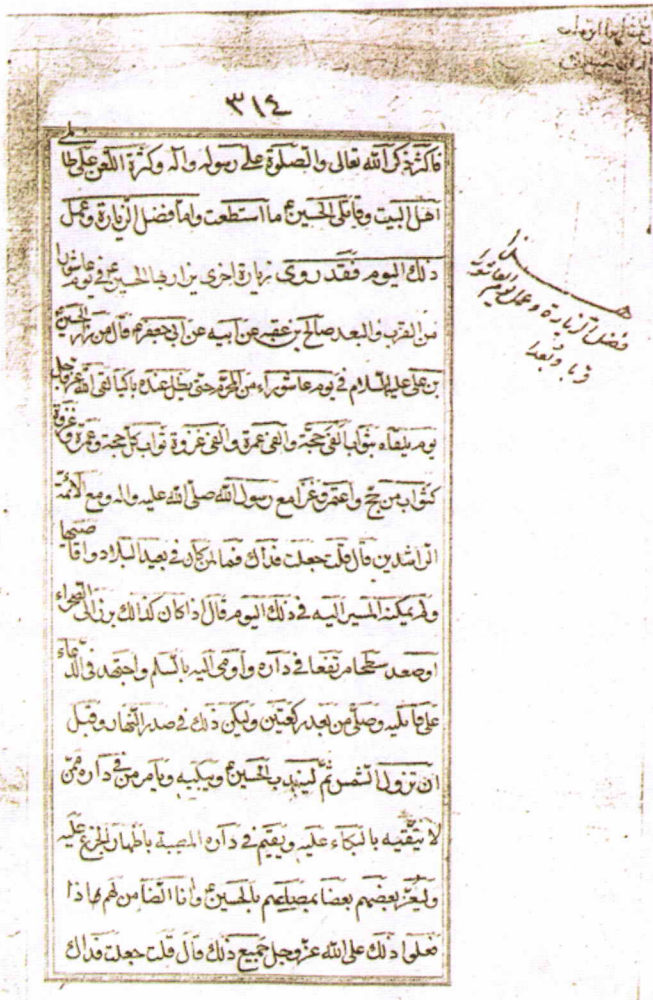 ٣١٤
فاكثر ذكر الله تعالى والصلوة على رسوله وآله وكثرة اللعن على ظالمي
اهل البيت وقاتلى الحسين ع ما استطعت واما فضل الزيارة وعمل
ذلك اليوم فقد روى زيارة اخرى يزار بها الحسين ع في يوم عاشورا
من القرب والبعد صالح بن عقبه عن ابيه عن ابى جعفر ع قال من زار الحسين
بن على عليه السلام في يوم عاشوراء من المحرم حتى يظل عنده باكيا لقى الله عز وجل
يوم يلقاه بثواب الفى حجة والفى عمرة والفى غزوة ثواب كل حجة وعمرة وغزوة
كثواب من حج واعتمر وغزا مع رسول الله صلى الله عليه واله ومع الائمة
الراشدين قال قلت جعلت فداك فما لمن كان في بعيد البلاد واقاصيها
ولم يمكنه المسير اليه في ذلك اليوم قال اذا كان كذالك برز الى الصحراء
او صعد سطحا مرتفعا في داره واومى اليه بالسلم واجتهد في الدعاء
على قاتليه وصلى من بعد ركعتين وليكن ذلك في صدر النهار وقبل
ان تزول الشمس ثم ليندب الحسين ع ويبكيه ويامر من في داره ممن
لا يتقيه بالبكاء عليه ويقيم في داره المصيبة باظهار الجزع عليه
وليعز بعضهم بعضا بمصابهم بالحسين ع وانا الضامن لهم اذا
فعلوا ذلك على الله عز وجل جميع ذلك قال قلت جعلت فداك
هذا
فضل الزيارة وعمل يوم العاشورا